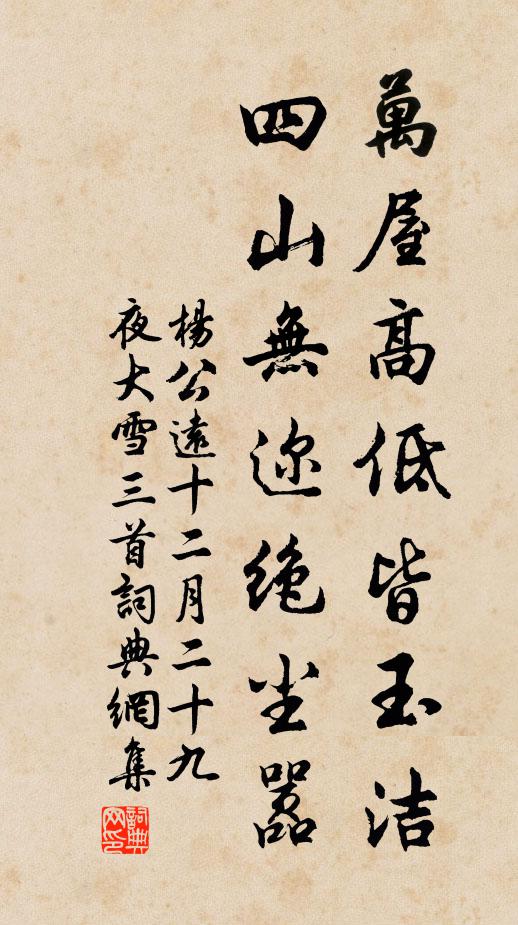 萬屋高低皆玉洁
四山無迩絶尘嚣
楊公遠十二月二十九
夜大雪三首詞典網集
詞典网印